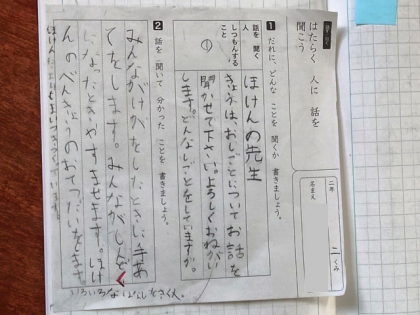 はたらく 人に 話を
聞こう
二年 二くみ
名まえ
1 だれに、どんな ことを 聞くか 書きましょう。
話を 聞く
人
ほけんの先生
しつもんする
こと
①
きょうは、おしごとについてお話を
聞かせて下さい。よろしくおねがい
します。どんなしごとをしていますか。
2 話を 聞いて 分かった ことを 書きましょう。
みんながけがをしたときに手あ
てをします。みんながしんぱ
いになったときやすませます。ほけ
んのべんきょうのおてつだいをします
いろいろなはなしをきく人。